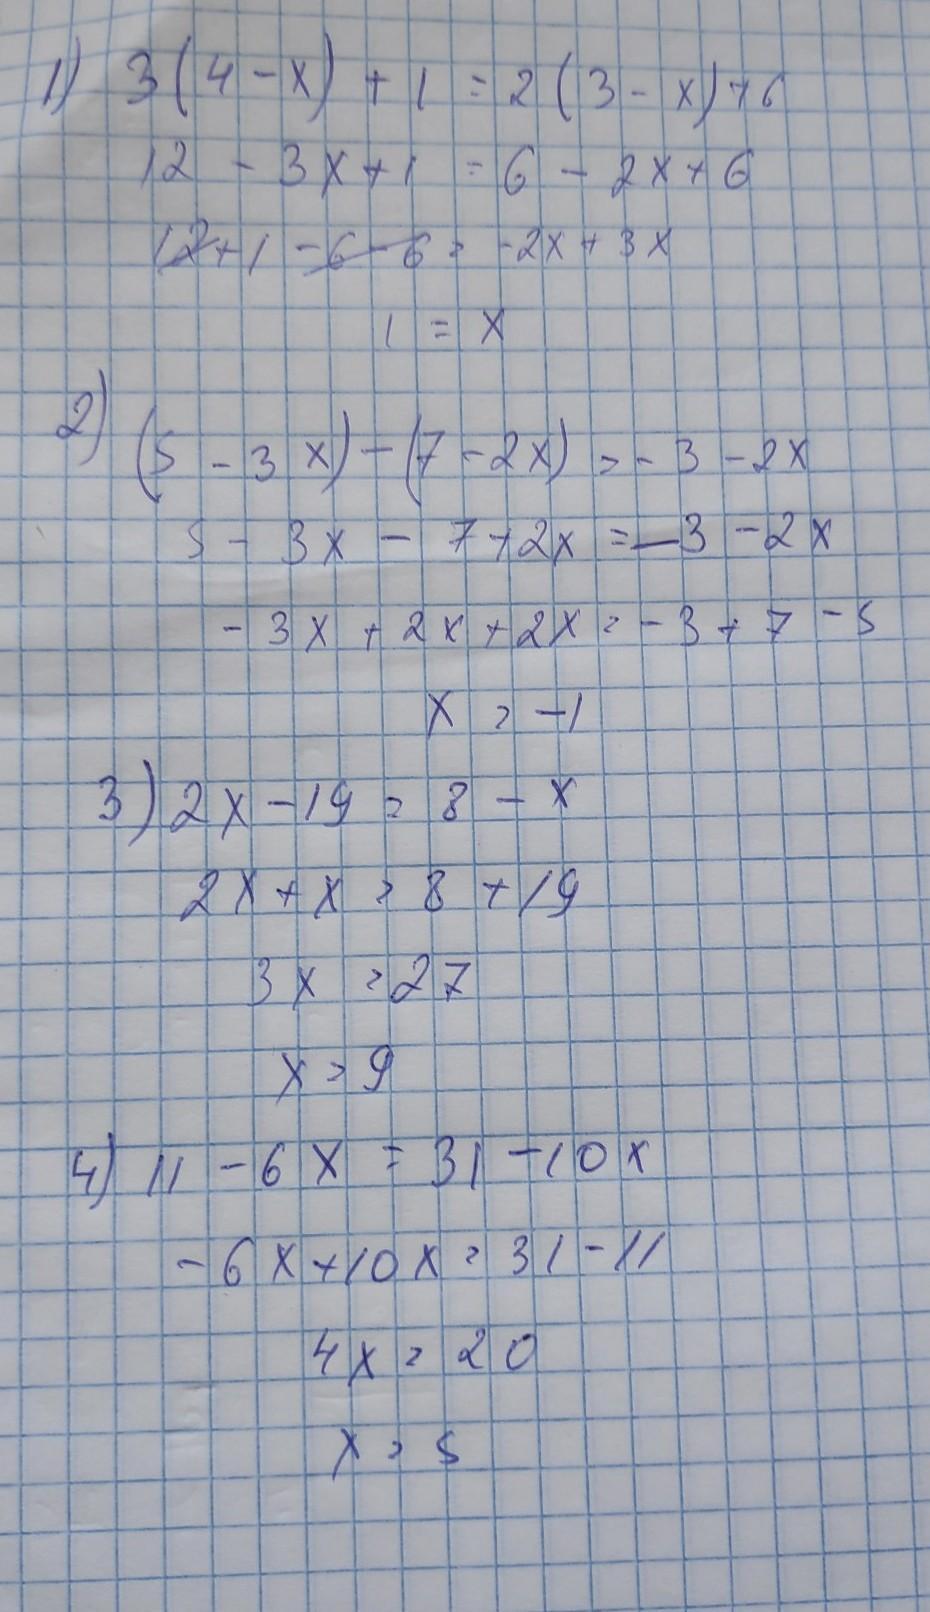 1) 3(4 - x) + 1 = 2(3 - x) + 6
12 - 3x + 1 = 6 - 2x + 6
12 + 1 - 6 - 6 = -2x + 3x
1 = x
2) (5 - 3x) - (7 - 2x) = -3 - 2x
5 - 3x - 7 + 2x = -3 - 2x
-3x + 2x + 2x = -3 + 7 - 5
x = -1
3) 2x - 19 = 8 - x
2x + x = 8 + 19
3x = 27
x = 9
4) 11 - 6x = 31 - 10x
-6x + 10x = 31 - 11
4x = 20
x = 5